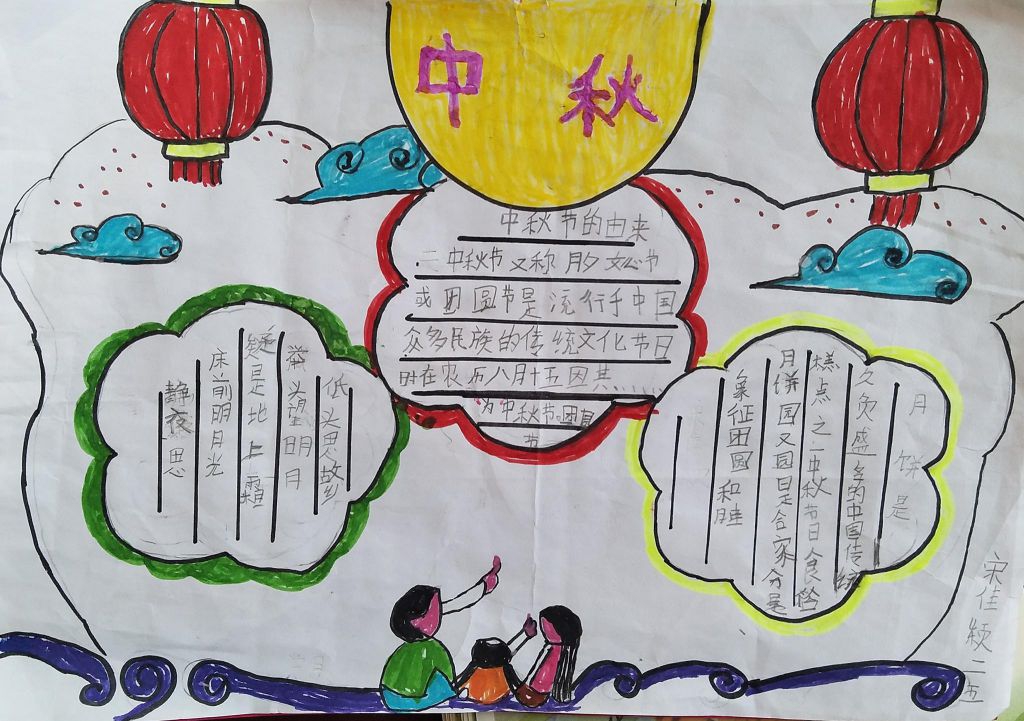 中 秋
中秋节的由来
二中秋节又称月夕
或团圆节是流行于中国
众多民族的传统文化节日
时在农历八月十五因其
为中秋节
节
静夜思
床前明月光
疑是地上霜
举头望明月
低头思故
月饼是
久负盛名的中国传统
糕点之一中秋节日食俗
月饼园又园日是合家分
象征团圆和
宋佳颖二五